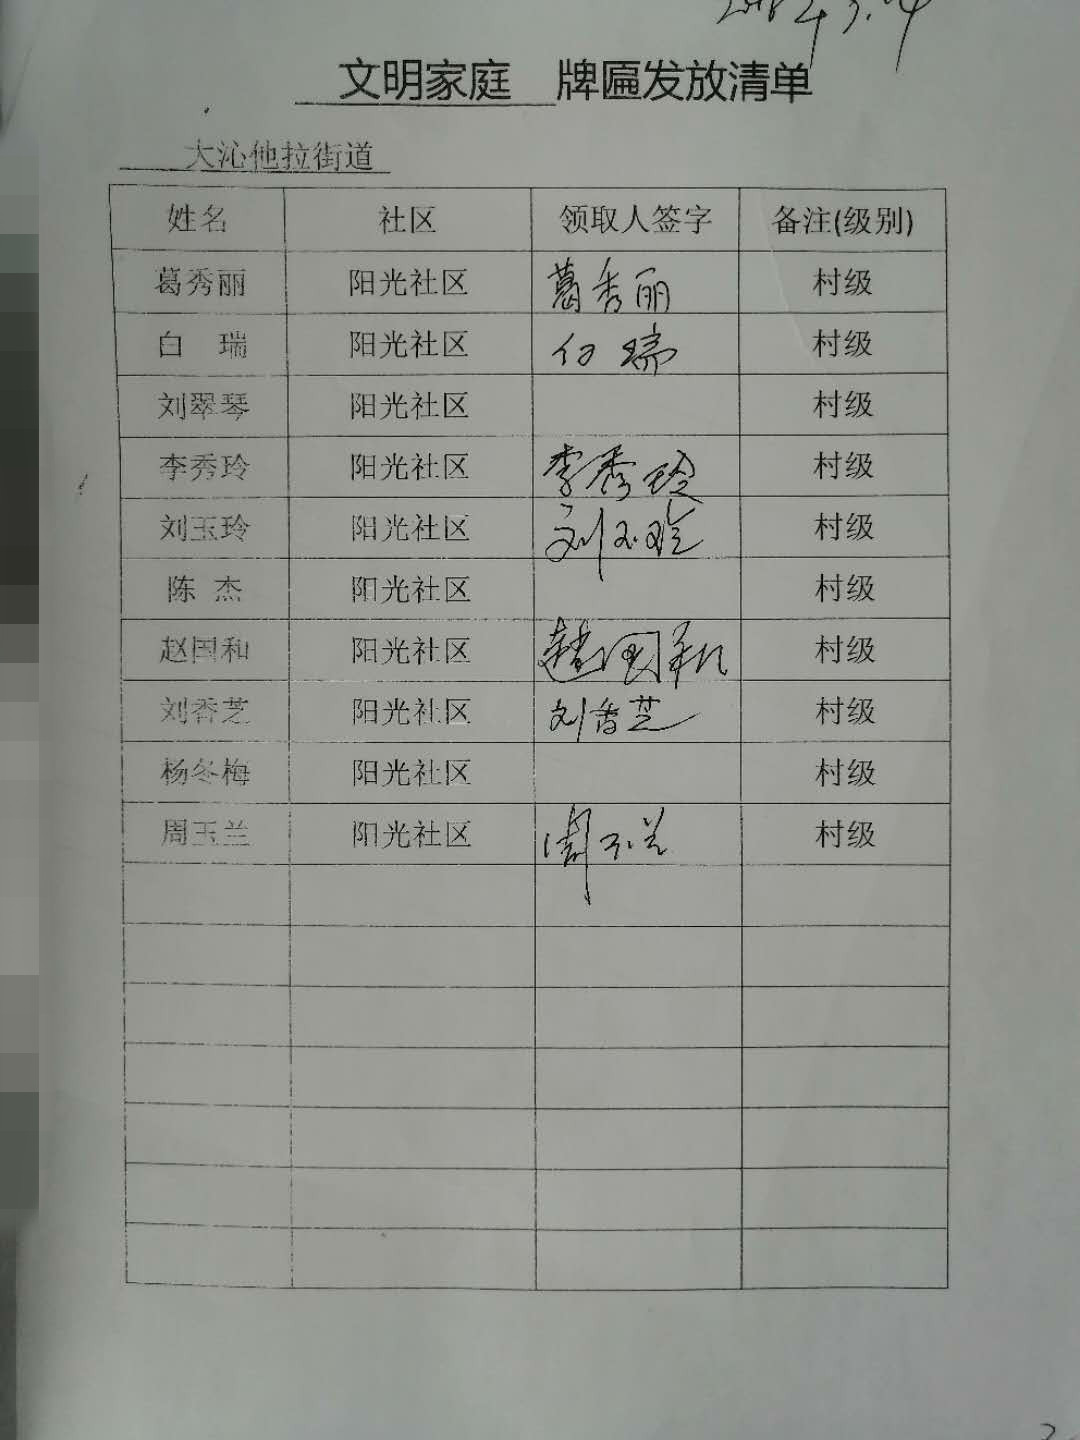 文明家庭 牌匾发放清单
大沁他拉街道
姓名 社区 领取人签字 备注(级别)
葛秀丽 阳光社区 葛秀丽 村级
白 瑞 阳光社区 白瑞 村级
刘翠琴 阳光社区 村级
李秀玲 阳光社区 李秀玲 村级
刘玉玲 阳光社区 刘玉玲 村级
陈 杰 阳光社区 村级
赵国和 阳光社区 赵国和 村级
刘香芝 阳光社区 刘香芝 村级
杨冬梅 阳光社区 村级
周玉兰 阳光社区 周玉兰 村级